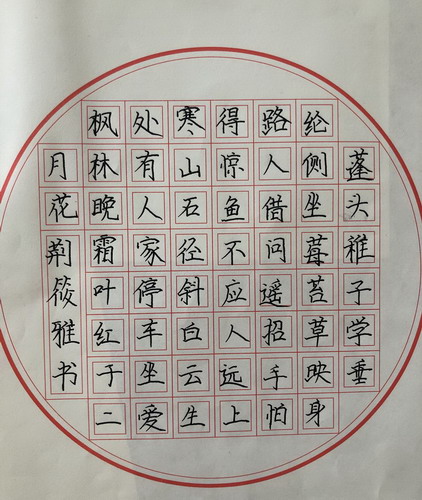 蓬头稚子学垂
纶侧坐莓苔草映身
路人借问遥招手怕
得惊鱼不应人远上
寒山石径斜白云生
处有人家停车坐爱
枫林晚霜叶红于二
月花荆筱雅书